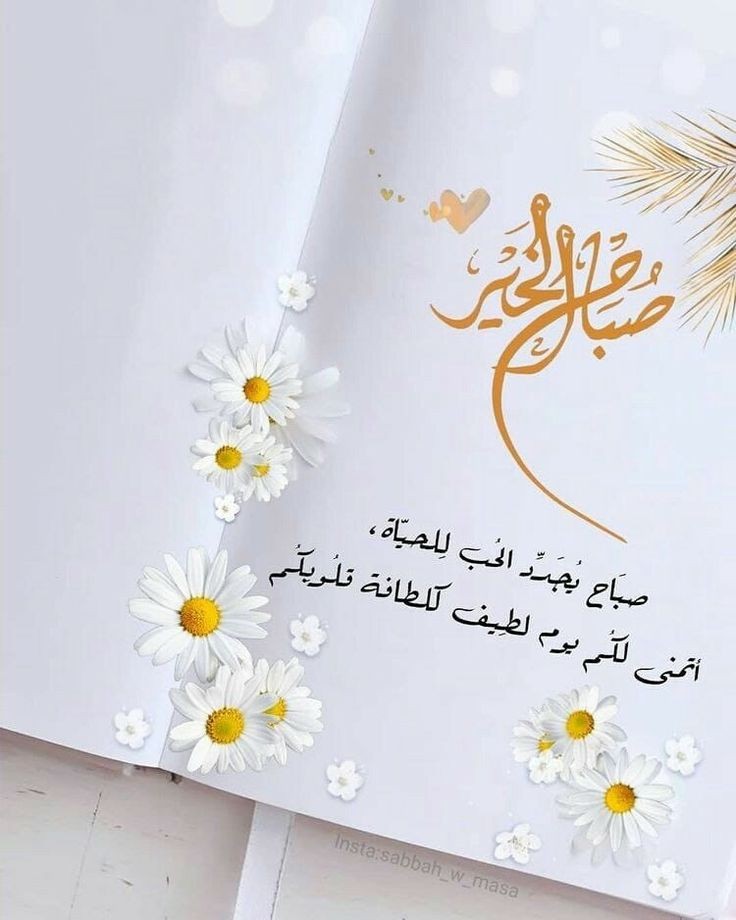 صُبَاحُ الخَيْر
صبَاح يُجَدِّد الحُب لِلحيّاة،
أتمنى لكُم يوم لطِيف كلطافة قلُوبكُم
Insta:sabbah_w_masa